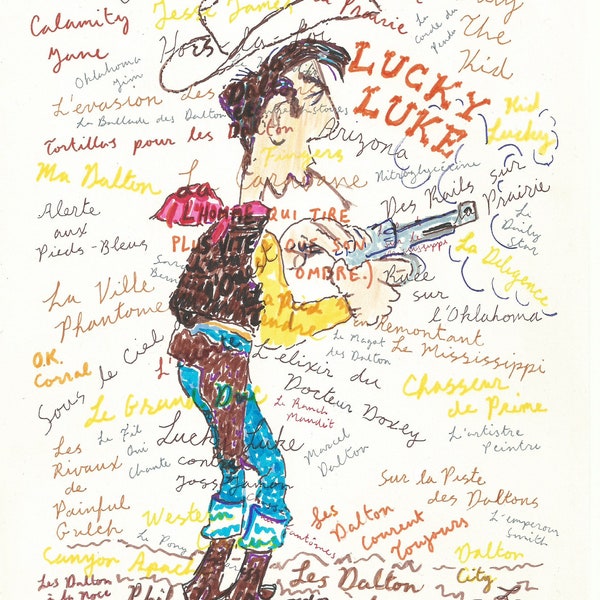 Calamity
Jane
Jesse James
La Prairie
La
Corde du
Pendu
The
Kid
Hors-la-loi
Oklahoma
Jim
L'evasion des Dalton
La Ballade des Dalton
LUCKY
LUKE
Kid
Lucky
Tortillas pour les Dalton
Arizona
Fingers
Nitroglycérine
Ma Dalton
La Caravane
Des Rails sur
la Prairie
Alerte
aux
Pieds-Bleus
(L'HOMME QUI TIRE
PLUS VITE QUE SON
OMBRE.)
Le
Daily
Star
La Diligence
La Ville
Phantome
Ruée
sur
l'Oklahoma
En remontant
Le Mississippi
O.K.
Corral
Sous le Ciel
Le Magot
des Dalton
L'elixir du
Docteur Doxey
Chasseur
de Prime
Le Grand Duc
Le Ranch
Maudit
Le Fil
Qui
Chante
Lucky Luke
contre
Joss Jamon
Marcel
Dalton
L'artistre
Peintre
Les
Rivaux
de
Painful
Gulch
Sur la Piste
des Daltons
L'empereur
Smith
Western
Les
Dalton
Courent
Toujours
Canyon Apache
Le Pony
Fantômes
Dalton
City
Les Dalton
à la Noce
Phil
Les Dalton